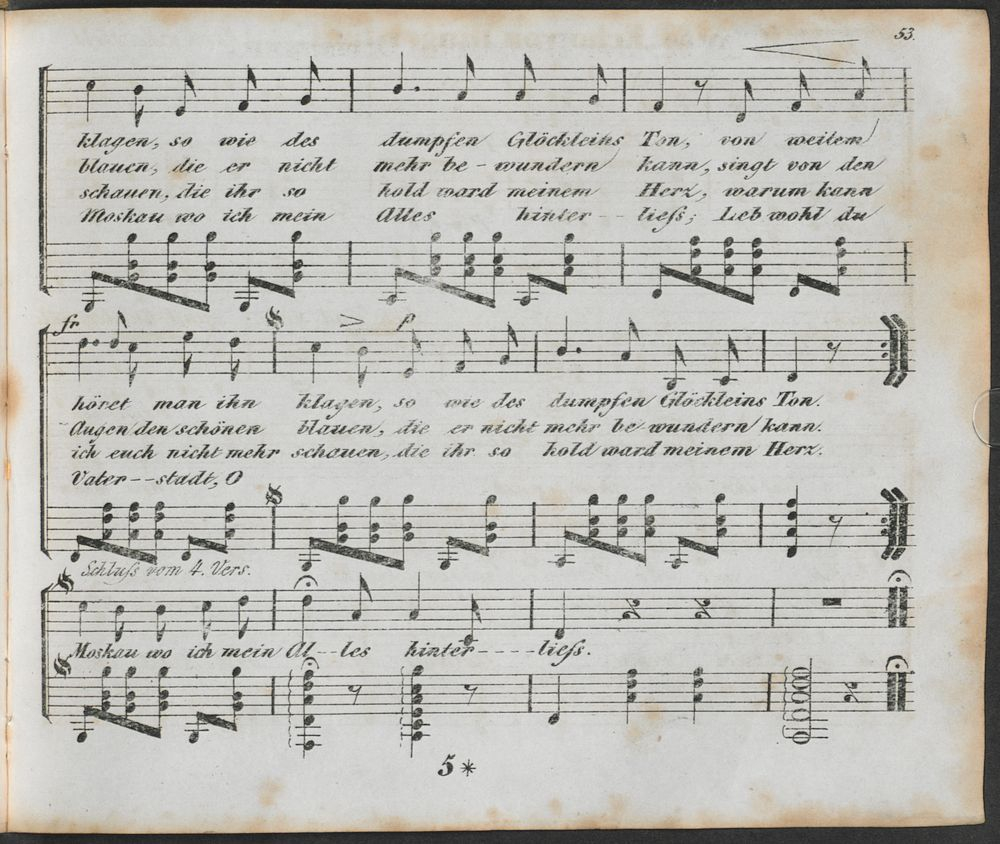 53.
klagen, so wie des dumpfen Glöckleins Ton, von weitem
blauen, die er nicht mehr be-wundern kann, singt von den
schauen, die ihr so hold ward meinem Herz, warum kann
Moskau wo ich mein Alles hinter--liefs; Leb wohl du
fr
p
höret man ihn klagen, so wie des dumpfen Glöckleins Ton.
Augen den schönen blauen, die er nicht mehr be wundern kann.
ich euch nicht mehr schauen, die ihr so hold ward meinem Herz.
Vater--stadt, O
Schlufs vom 4. Vers.
Moskau wo ich mein Al--les hinter----liefs.
5*